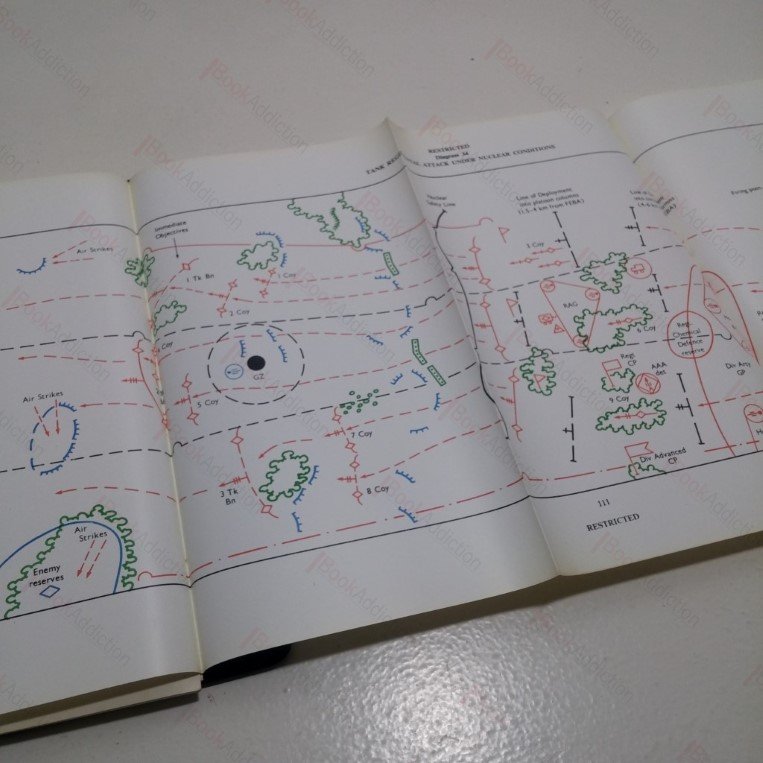 RESTRICTED
Diagram 34
ATTACK UNDER NUCLEAR CONDITIONS
Air Strikes
Immediate
Objectives
1 Tk Bn
1 Coy
2 Coy
Coy
GZ
5 Coy
7 Coy
8 Coy
3 Tk
Bn
Air Strikes
Air
Strikes
Enemy
reserves
Nuclear
Safety Line
Line of Deployment
into platoon columns
(1.5-4 km from FEBA)
3 Coy
RAG
Coy
Regt
CP
AAA
det
9 Coy
Regt
Chemical
Defence
reserve
Div Arty
Div Advanced
CP
111
RESTRICTED
iBookAddiction